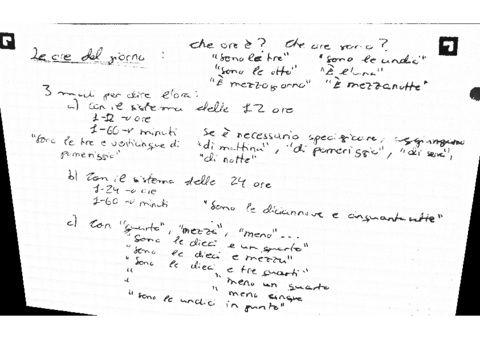 Le ore del giorno : che ore è? che ore sono?
"sono le tre" "sono le undici"
"sono le otto" "È l'una"
"È mezzogiorno" "È mezzanotte"
3 modi per dire l'ora:
a) con il sistema delle 12 ore
1-12 → ore
1-60 → minuti se è necessario specificare:
"sono le tre e venticinque di pomeriggio" "di mattina", "di pomeriggio", "di sera", "di notte"
b) con il sistema delle 24 ore
1-24 → ore
1-60 → minuti "sono le diciannove e cinquantasette"
c) con "quarto", "mezza", "meno"...
"sono le dieci e un quarto"
"sono le dieci e mezza"
"sono le dieci e tre quarti"
" " meno un quarto
" " meno cinque
"sono le undici in punto"